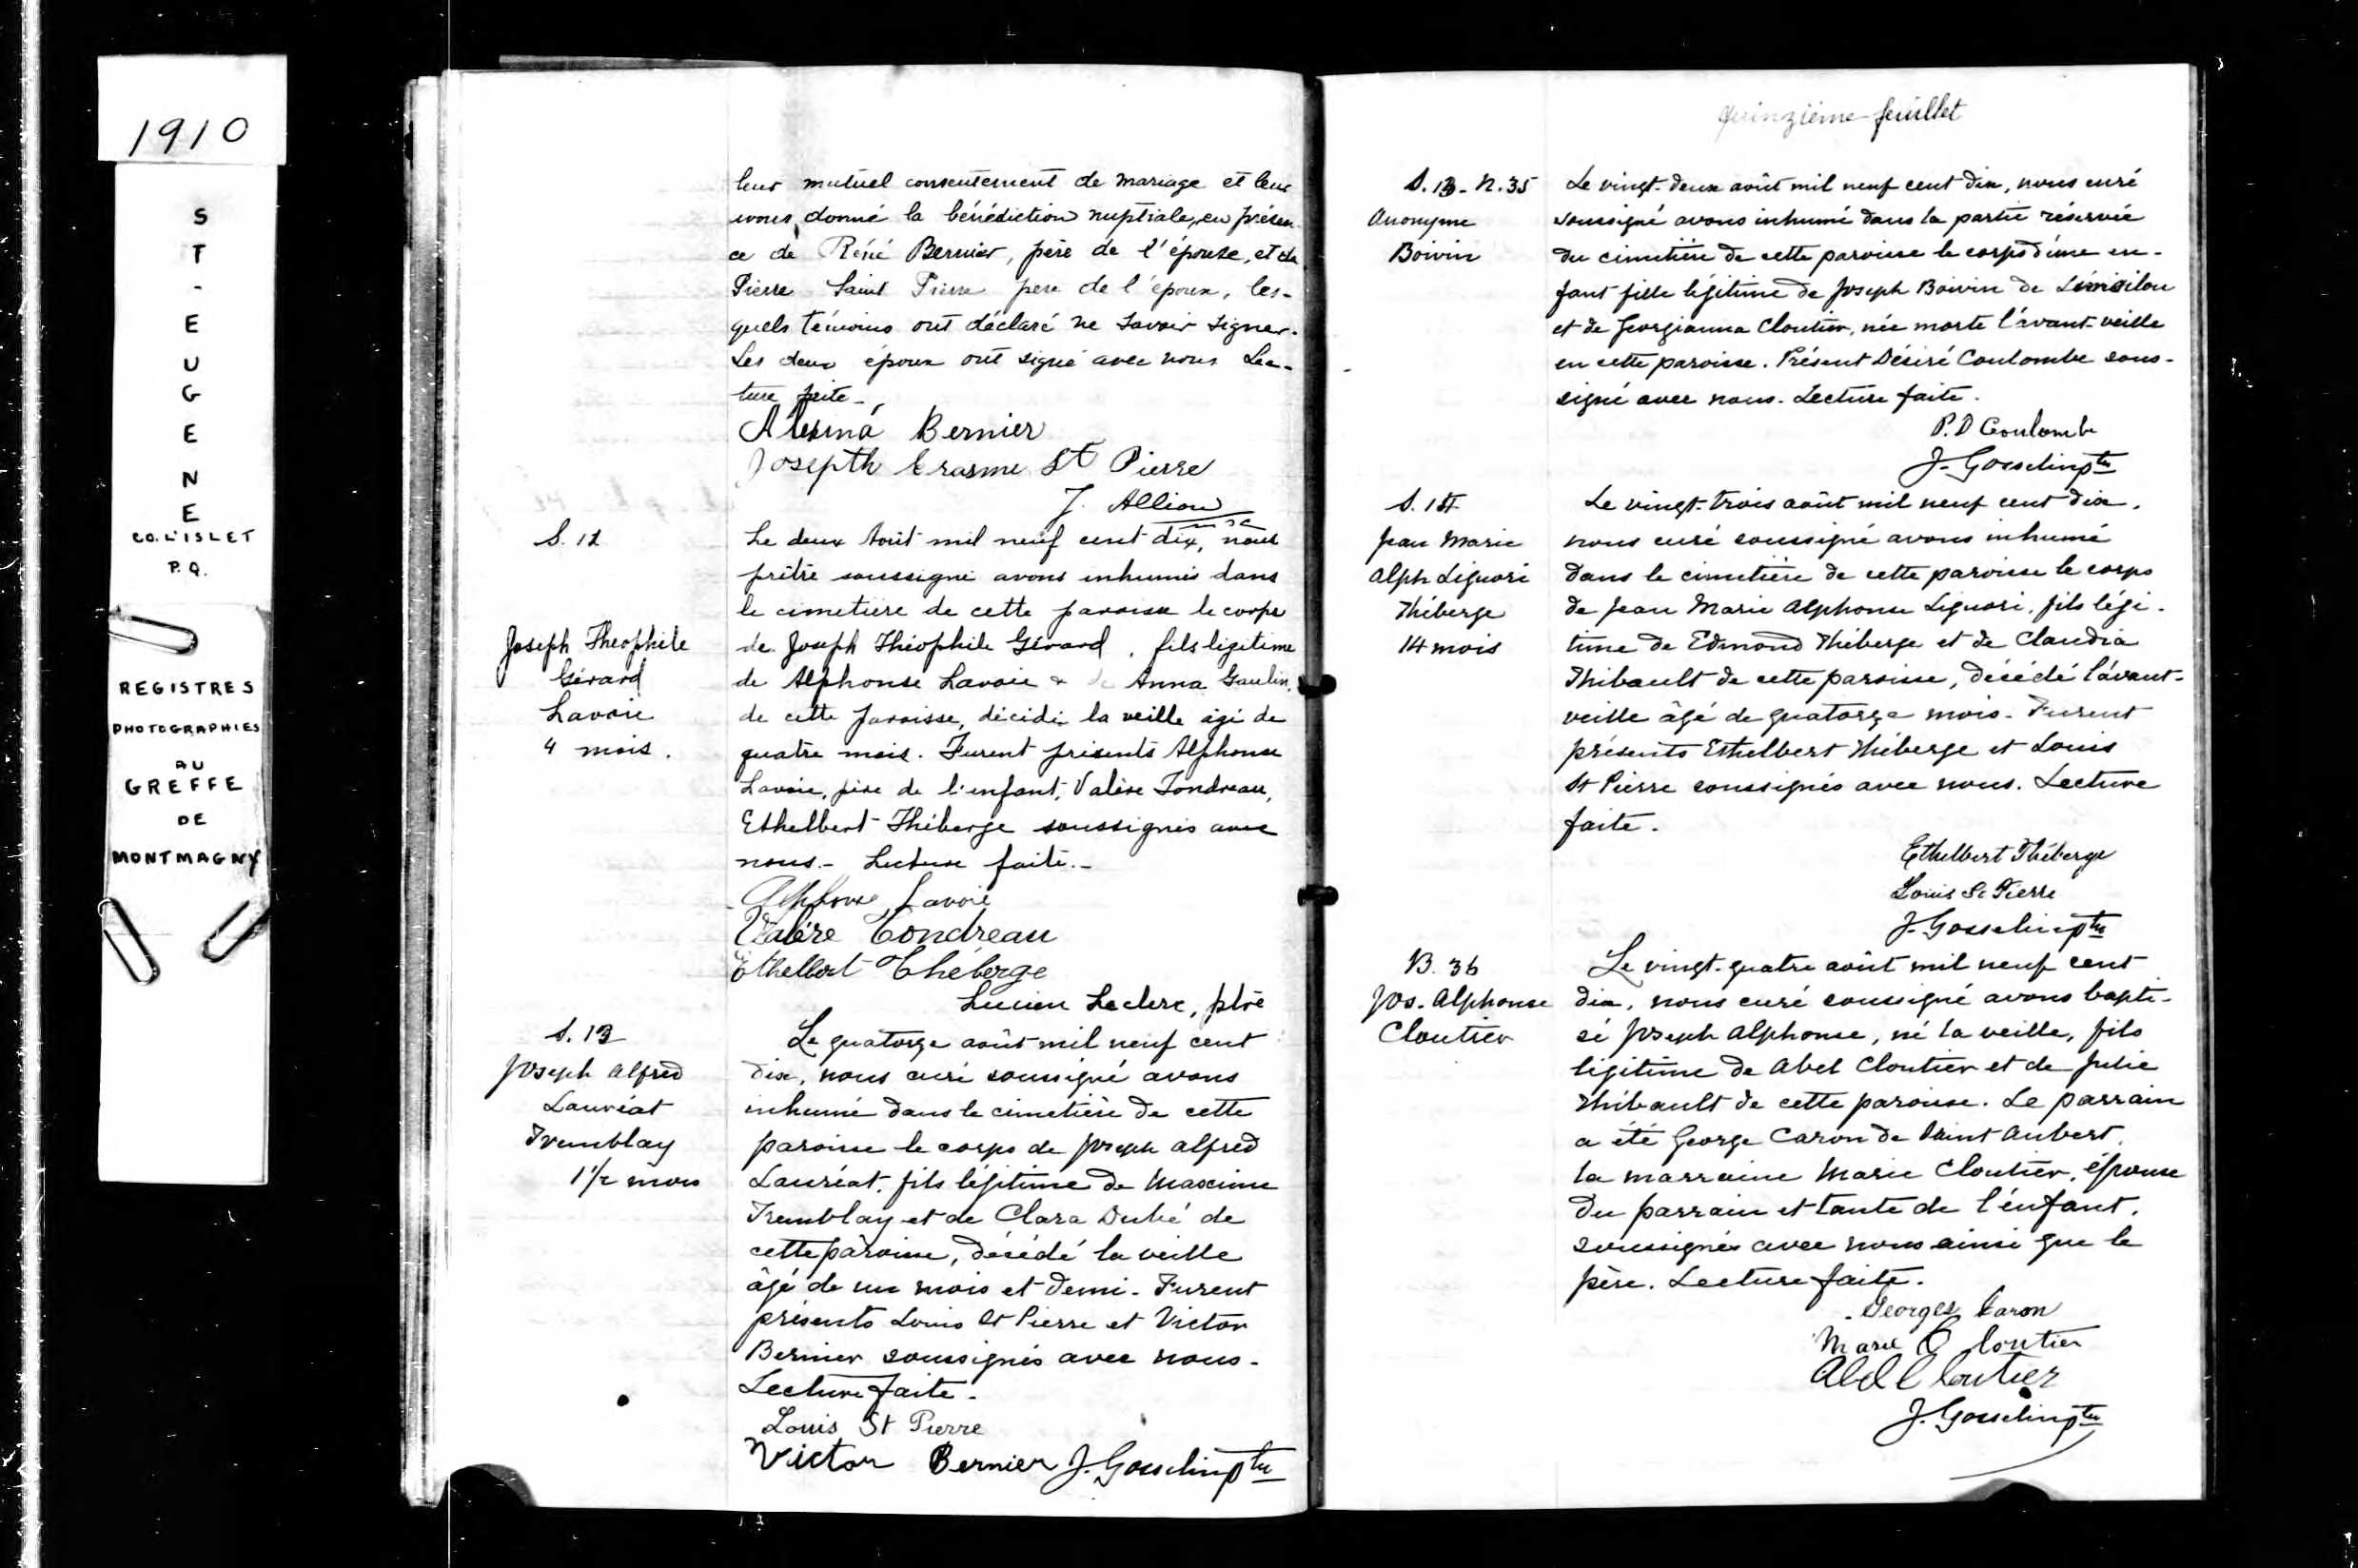 1910
S
T
-
E
U
G
E
N
E
CO. L'ISLET
P.Q.
REGISTRES
PHOTOGRAPHIES
AU
GREFFE
DE
MONTMAGNY
leur mutuel consentement de mariage et leur
avons donné la bénédiction nuptiale, en présen-
ce de Réné Bernier, père de l'épouse, et de
Pierre Saint Pierre père de l'époux, les-
quels témoins ont déclaré ne savoir signer.
Les deux époux ont signé avec nous Lec-
ture faite -
Alexina Bernier
Josepth Erasme St Pierre
J. Allion
S. 12
Joseph Théophile
Gérard
Lavoie
4 mois.
Le deux Août mil neuf cent dix, nous
prêtre soussigné avons inhumés dans
le cimetière de cette paroisse le corps
de Joseph Théophile Gérard, fils légitime
de Alphonse Lavoie & de Anna Gaulin,
de cette Paroisse, décédé la veille âgé de
quatre mois. Furent présents Alphonse
Lavoie, père de l'enfant, Valère Tondreau,
Ethelbert Théberge soussignés avec
nous.- Lecture faite.-
Alphonse Lavoie
Valère Tondreau
Ethelbert Théberge
Lucien Leclerc, ptre
S. 13
Joseph Alfred
Lauréat
Tremblay
1 1/2 mois
Le quatorze août mil neuf cent
dix, nous curé soussigné avons
inhumé dans le cimetière de cette
paroisse le corps de Joseph Alfred
Lauréat, fils légitime de Maxime
Tremblay et de Clara Dubé de
cette paroisse, décédé la veille
âgé de un mois et demi. Furent
présents Louis St Pierre et Victor
Bernier soussignés avec nous.
Lecture faite.
Louis St Pierre
Victor Bernier J. Gosselin ptre
quinzième feuillet
S. 13 - N. 35
Anonyme
Boivin
Le vingt-deux août mil neuf cent dix, nous curé
soussigné avons inhumé dans la partie réservée
du cimetière de cette paroisse le corps d'une en-
fant fille légitime de Joseph Boivin de
et de Georgianna Cloutier, née morte l'avant-veille
en cette paroisse. Présent Désiré Coulombe sous-
signé avec nous. Lecture faite.
P. D Coulombe
J. Gosselin ptre
S. 14
Jean Marie
Alph Liguori
Théberge
14 mois
Le vingt-trois août mil neuf cent dix,
nous curé soussigné avons inhumé
dans le cimetière de cette paroisse le corps
de Jean Marie Alphonse Liguori, fils légi-
time de Edmond Théberge et de Claudia
Thibault de cette paroisse, décédé l'avant-
veille âgé de quatorze mois. Furent
présents Ethelbert Théberge et Louis
St Pierre soussignés avec nous. Lecture
faite.
Ethelbert Théberge
Louis St Pierre
J. Gosselin ptre
B. 36
Jos. Alphonse
Cloutier
Le vingt-quatre août mil neuf cent
dix, nous curé soussigné avons bapti-
sé Joseph Alphonse, né la veille, fils
légitime de Abel Cloutier et de Julie
Thibault de cette paroisse. Le parrain
a été George Caron de Saint Aubert,
la marraine Marie Cloutier, épouse
du parrain et tante de l'enfant,
soussignés avec nous ainsi que le
père. Lecture faite.
Georges Caron
Marie Cloutier
Abel Cloutier
J. Gosselin ptre